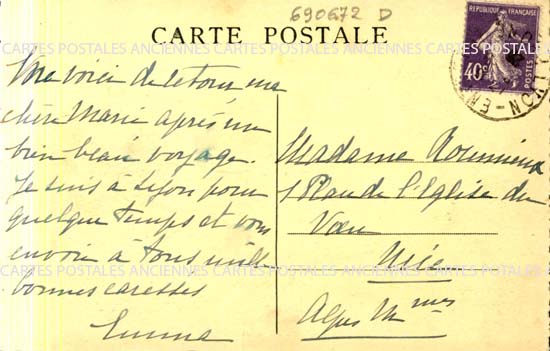 690672 D
CARTE POSTALE
REPUBLIQUE FRANÇAISE
40c
POSTES
CARTES POSTALES ANCIENNES CARTES POSTALES ANCIENNES CARTES POSTALES ANCIENNES
Me voici de retour ma
chère Marie après un
bien beau voyage.
Je suis à Lyon pour
quelque temps et vous
envoie à tous mille
bonnes caresses
Emma
Madame
1 Place de l'Eglise du
Vœu
Nice
Alpes Mmes
CARTES POSTALES ANCIENNES CARTES POSTALES ANCIENNES CARTES POSTALES ANCIENNES